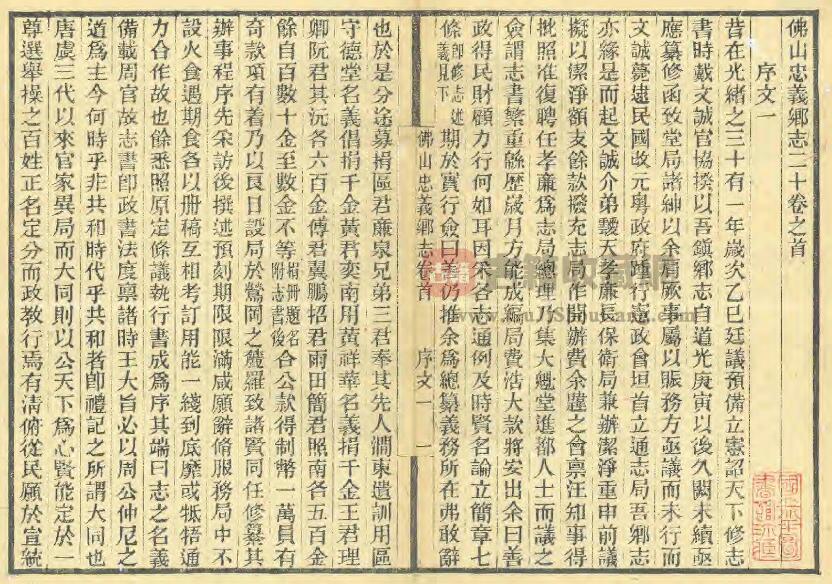 佛山忠義鄉志二十卷之首
序文一
昔在光緒之三十有一年歲次乙巳廷議預備立憲詔天下修志
書時戴文誠官協揆以吾鎭鄉志自道光庚寅以後久闕未續亟
應纂修函致堂局諸紳以余肩厥事屬以賬務方亟議而未行而
文誠薨逮民國改元粵政府踵行憲政會垣首立通志局吾鄉志
亦緣是而起文誠介弟 天孝廉長保衛局兼辦潔淨重申前議
擬以潔淨額支餘款撥充志局作開辦費余韙之會稟汪知事得
批照准復聘任孝廉爲志局總理乃集大魁堂進鄙人士而議之
僉謂志書繁重緜歷歲月方能成編局費浩大款將安出余曰善
政得民財顧力行何如耳因采各志通例及時賢名論立簡章七
條卽修志述義見下期於實行僉曰善乃推余爲總纂義務所在弗敢辭
佛山忠義鄉志卷首
序文一
一
也於是分途募捐區君廉泉兄弟三君奉其先人澗東遺訓用區
守德堂名義倡捐千金黃君奕南用黃祥華名義捐千金王君理
卿阮君其沅各六百金傅君翼鵬招君雨田簡君照南各五百金
餘自百數十金至數金不等捐冊題名附志書後合公款得制幣一萬員有
奇款項有着乃以艮日設局於鶯岡之麓羅致諸賢同任修纂其
辦事程序先采訪後撰述預刻期限限滿咸願辭脩服務局中不
設火食遇期會各以册稿互相考訂用能一綫到底靡或牴牾通
力合作故也余悉照原定條議執行書成爲序其端曰志之名義
備載周官故志書卽政書法度稟諸時王大旨必以周公仲尼之
道爲主今何時乎非共和時代乎共和者卽禮記之所謂大同也
唐虞三代以來官家異局而大同則以公天下爲心賢能定於一
尊選舉操之百姓正名定分而政教行焉有淸俯從民願於宣統